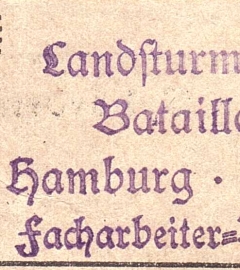 Landſturm
Bataill
Hamburg ·
Facharbeiter=